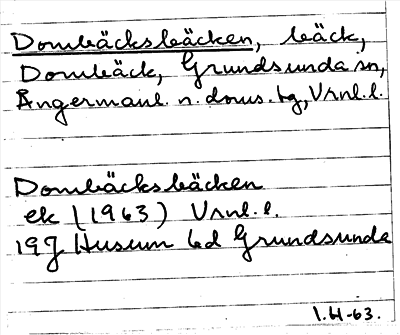 Dombäcksbäcken, bäck,
Dombäck, Grundsunda sn,
Ångermanl. n. doms. tg, Vrnl. l.
Dombäcksbäcken
ek (1963) Vrnl. l.
19g Husum bd Grundsunda
I.H-63.